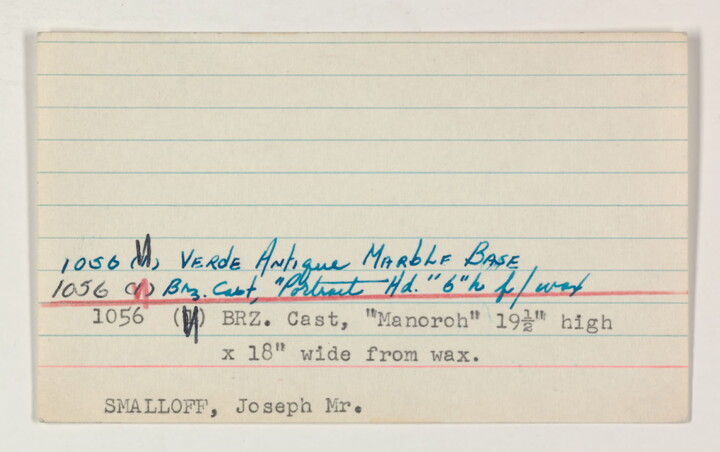 1056 (1) VERDE ANtique MARBLE BASE
1056 (1) BRZ. Cast, "Portrait Hd." 6" h f/ wax
1056 (1) BRZ. Cast, "Manoroh" 19½" high
x 18" wide from wax.
SMALLOFF, Joseph Mr.